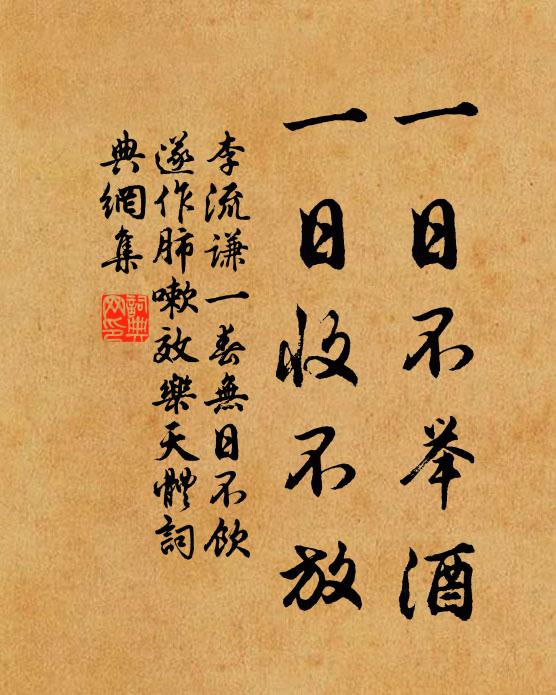 一日不举酒
一日收不放
李流謙一春無日不飲
遂作肺嗽效樂天體詞
典網集
詞典網印